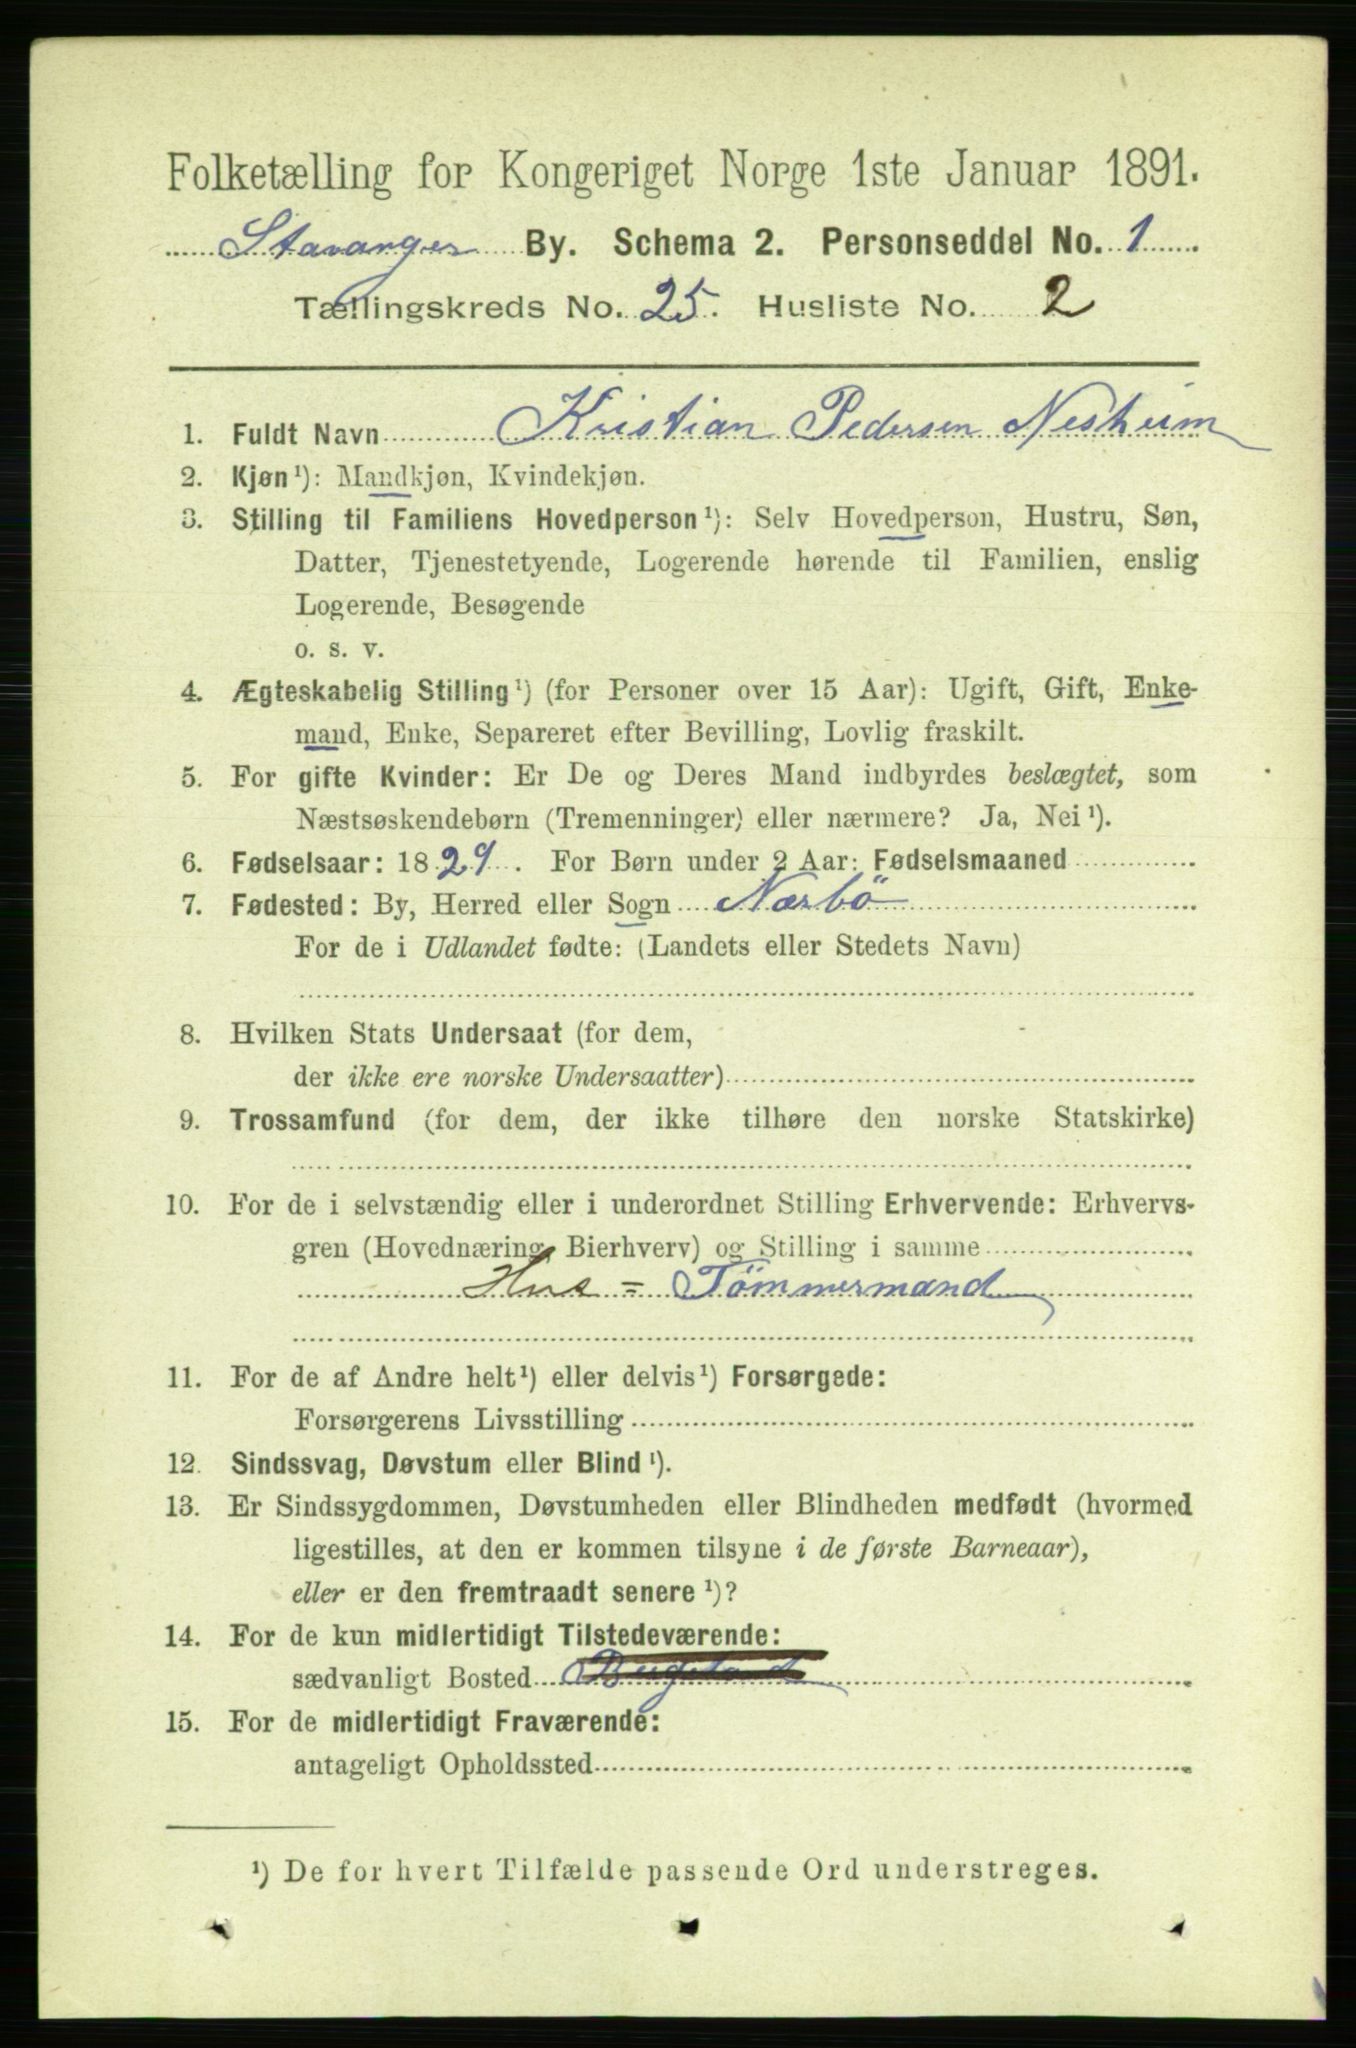 Folketælling for Kongeriget Norge 1ste Januar 1891.
Stavanger By. Schema 2. Personseddel No. 1
Tællingskreds No. 25. Husliste No. 2
1. Fuldt Navn Kristian Pedersen Nesheim
2. Kjøn¹): Mandkjøn, Kvindekjøn.
3. Stilling til Familiens Hovedperson¹): Selv Hovedperson, Hustru, Søn,
Datter, Tjenestetyende, Logerende hørende til Familien, enslig
Logerende, Besøgende
o. s. v.
4. Ægteskabelig Stilling¹) (for Personer over 15 Aar): Ugift, Gift, Enke-
mand, Enke, Separeret efter Bevilling, Lovlig fraskilt.
5. For gifte Kvinder: Er De og Deres Mand indbyrdes beslægtet, som
Næstsøskendebørn (Tremenninger) eller nærmere? Ja, Nei¹).
6. Fødselsaar: 1829. For Børn under 2 Aar: Fødselsmaaned
7. Fødested: By, Herred eller Sogn Nærbö
For de i Udlandet fødte: (Landets eller Stedets Navn)
8. Hvilken Stats Undersaat (for dem,
der ikke ere norske Undersaatter)
9. Trossamfund (for dem, der ikke tilhøre den norske Statskirke)
10. For de i selvstændig eller i underordnet Stilling Erhvervende: Erhvervs-
gren (Hovednæring, Bierhverv) og Stilling i samme
Hus = Tömmermand
11. For de af Andre helt¹) eller delvis¹) Forsørgede:
Forsørgerens Livsstilling
12. Sindssvag, Døvstum eller Blind¹).
13. Er Sindssygdommen, Døvstumheden eller Blindheden medfødt (hvormed
ligestilles, at den er kommen tilsyne i de første Barneaar),
eller er den fremtraadt senere¹)?
14. For de kun midlertidigt Tilstedeværende:
sædvanligt Bosted
15. For de midlertidigt Fraværende:
antageligt Opholdssted
¹) De for hvert Tilfælde passende Ord understreges.